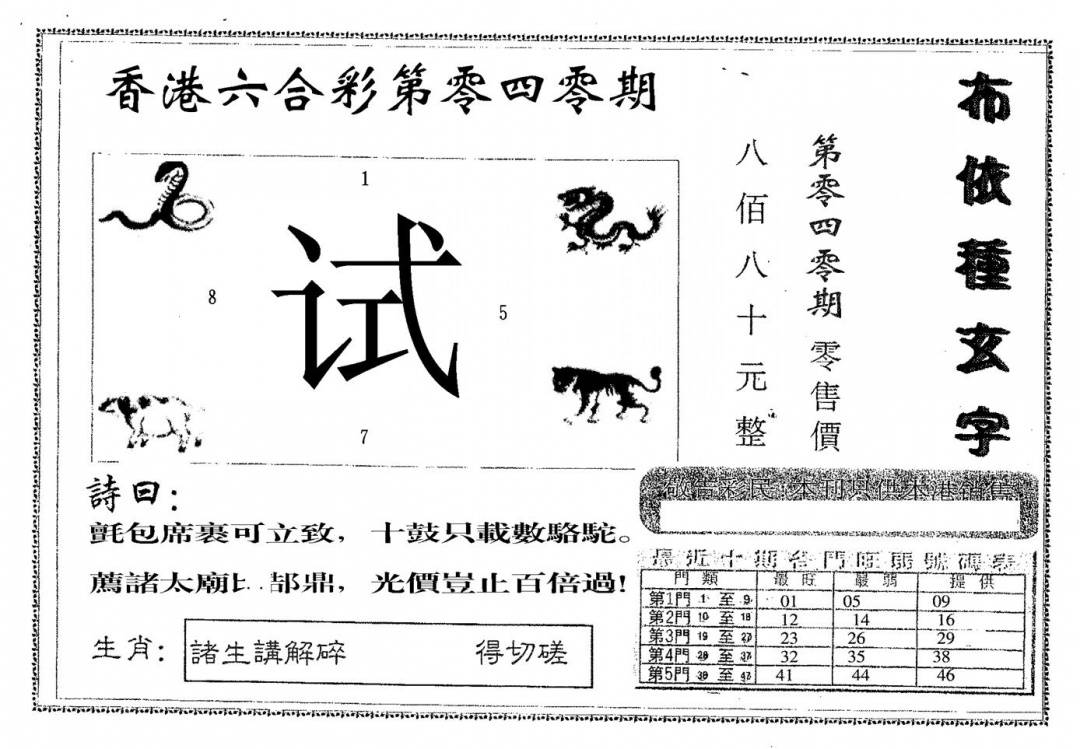 香港六合彩第零四零期
布依種玄字
第零四零期 零售價
八佰八十元整
1
8
试
5
7
詩曰：
氈包席裹可立致，十鼓只載數駱駝。
薦諸太廟比 郜鼎，光價豈止百倍過!
生肖：
諸生講解碎 得切磋
敬告彩民:本刊只供本港銷售
最近十期各門旺弱號碼表
門類 最旺 最弱 提供
第1門 1 至 9 01 05 09
第2門 10 至 18 12 14 16
第3門 19 至 27 23 26 29
第4門 28 至 37 32 35 38
第5門 38 至 47 41 44 46